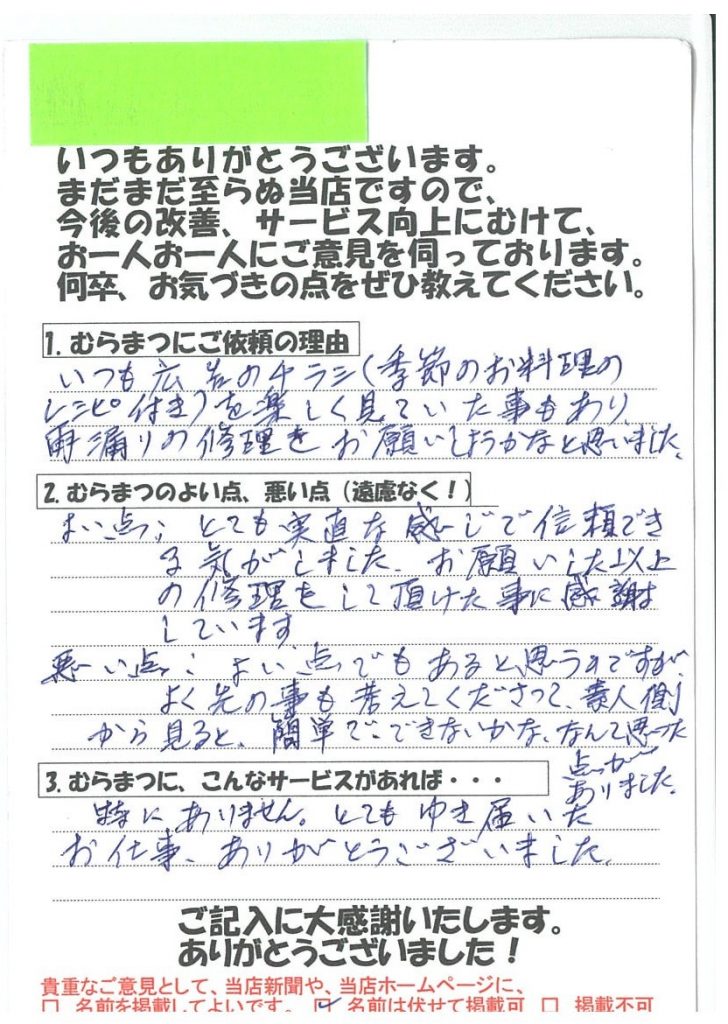 いつもありがとうございます。
まだまだ至らぬ当店ですので、
今後の改善、サービス向上にむけて、
お一人お一人にご意見を伺っております。
何卒、お気づきの点をぜひ教えてください。
1. むらまつにご依頼の理由
いつも広告のチラシ(季節のお料理の
レシピ付き)を楽しく見ていた事もあり
雨漏りの修理をお願いしようかなと思いました。
2. むらまつのよい点、悪い点（遠慮なく！）
よい点; とても実直な感じで信頼でき
る気がしました。お願いした以上
の修理をして頂けた事に感謝
しています
悪い点: よい点でもあると思うのですが、
よく先の事も考えてくださって、素人側
から見ると、簡単でできないかな、なんて思った
点が
ありました。
3. むらまつに、こんなサービスがあれば・・・
特にありません。とてもゆき届いた
お仕事、ありがとうございました。
ご記入に大感謝いたします。
ありがとうございました！
貴重なご意見として、当店新聞や、当店ホームページに、
□ 名前を掲載してよいです。 ☑ 名前は伏せて掲載可 □ 掲載不可